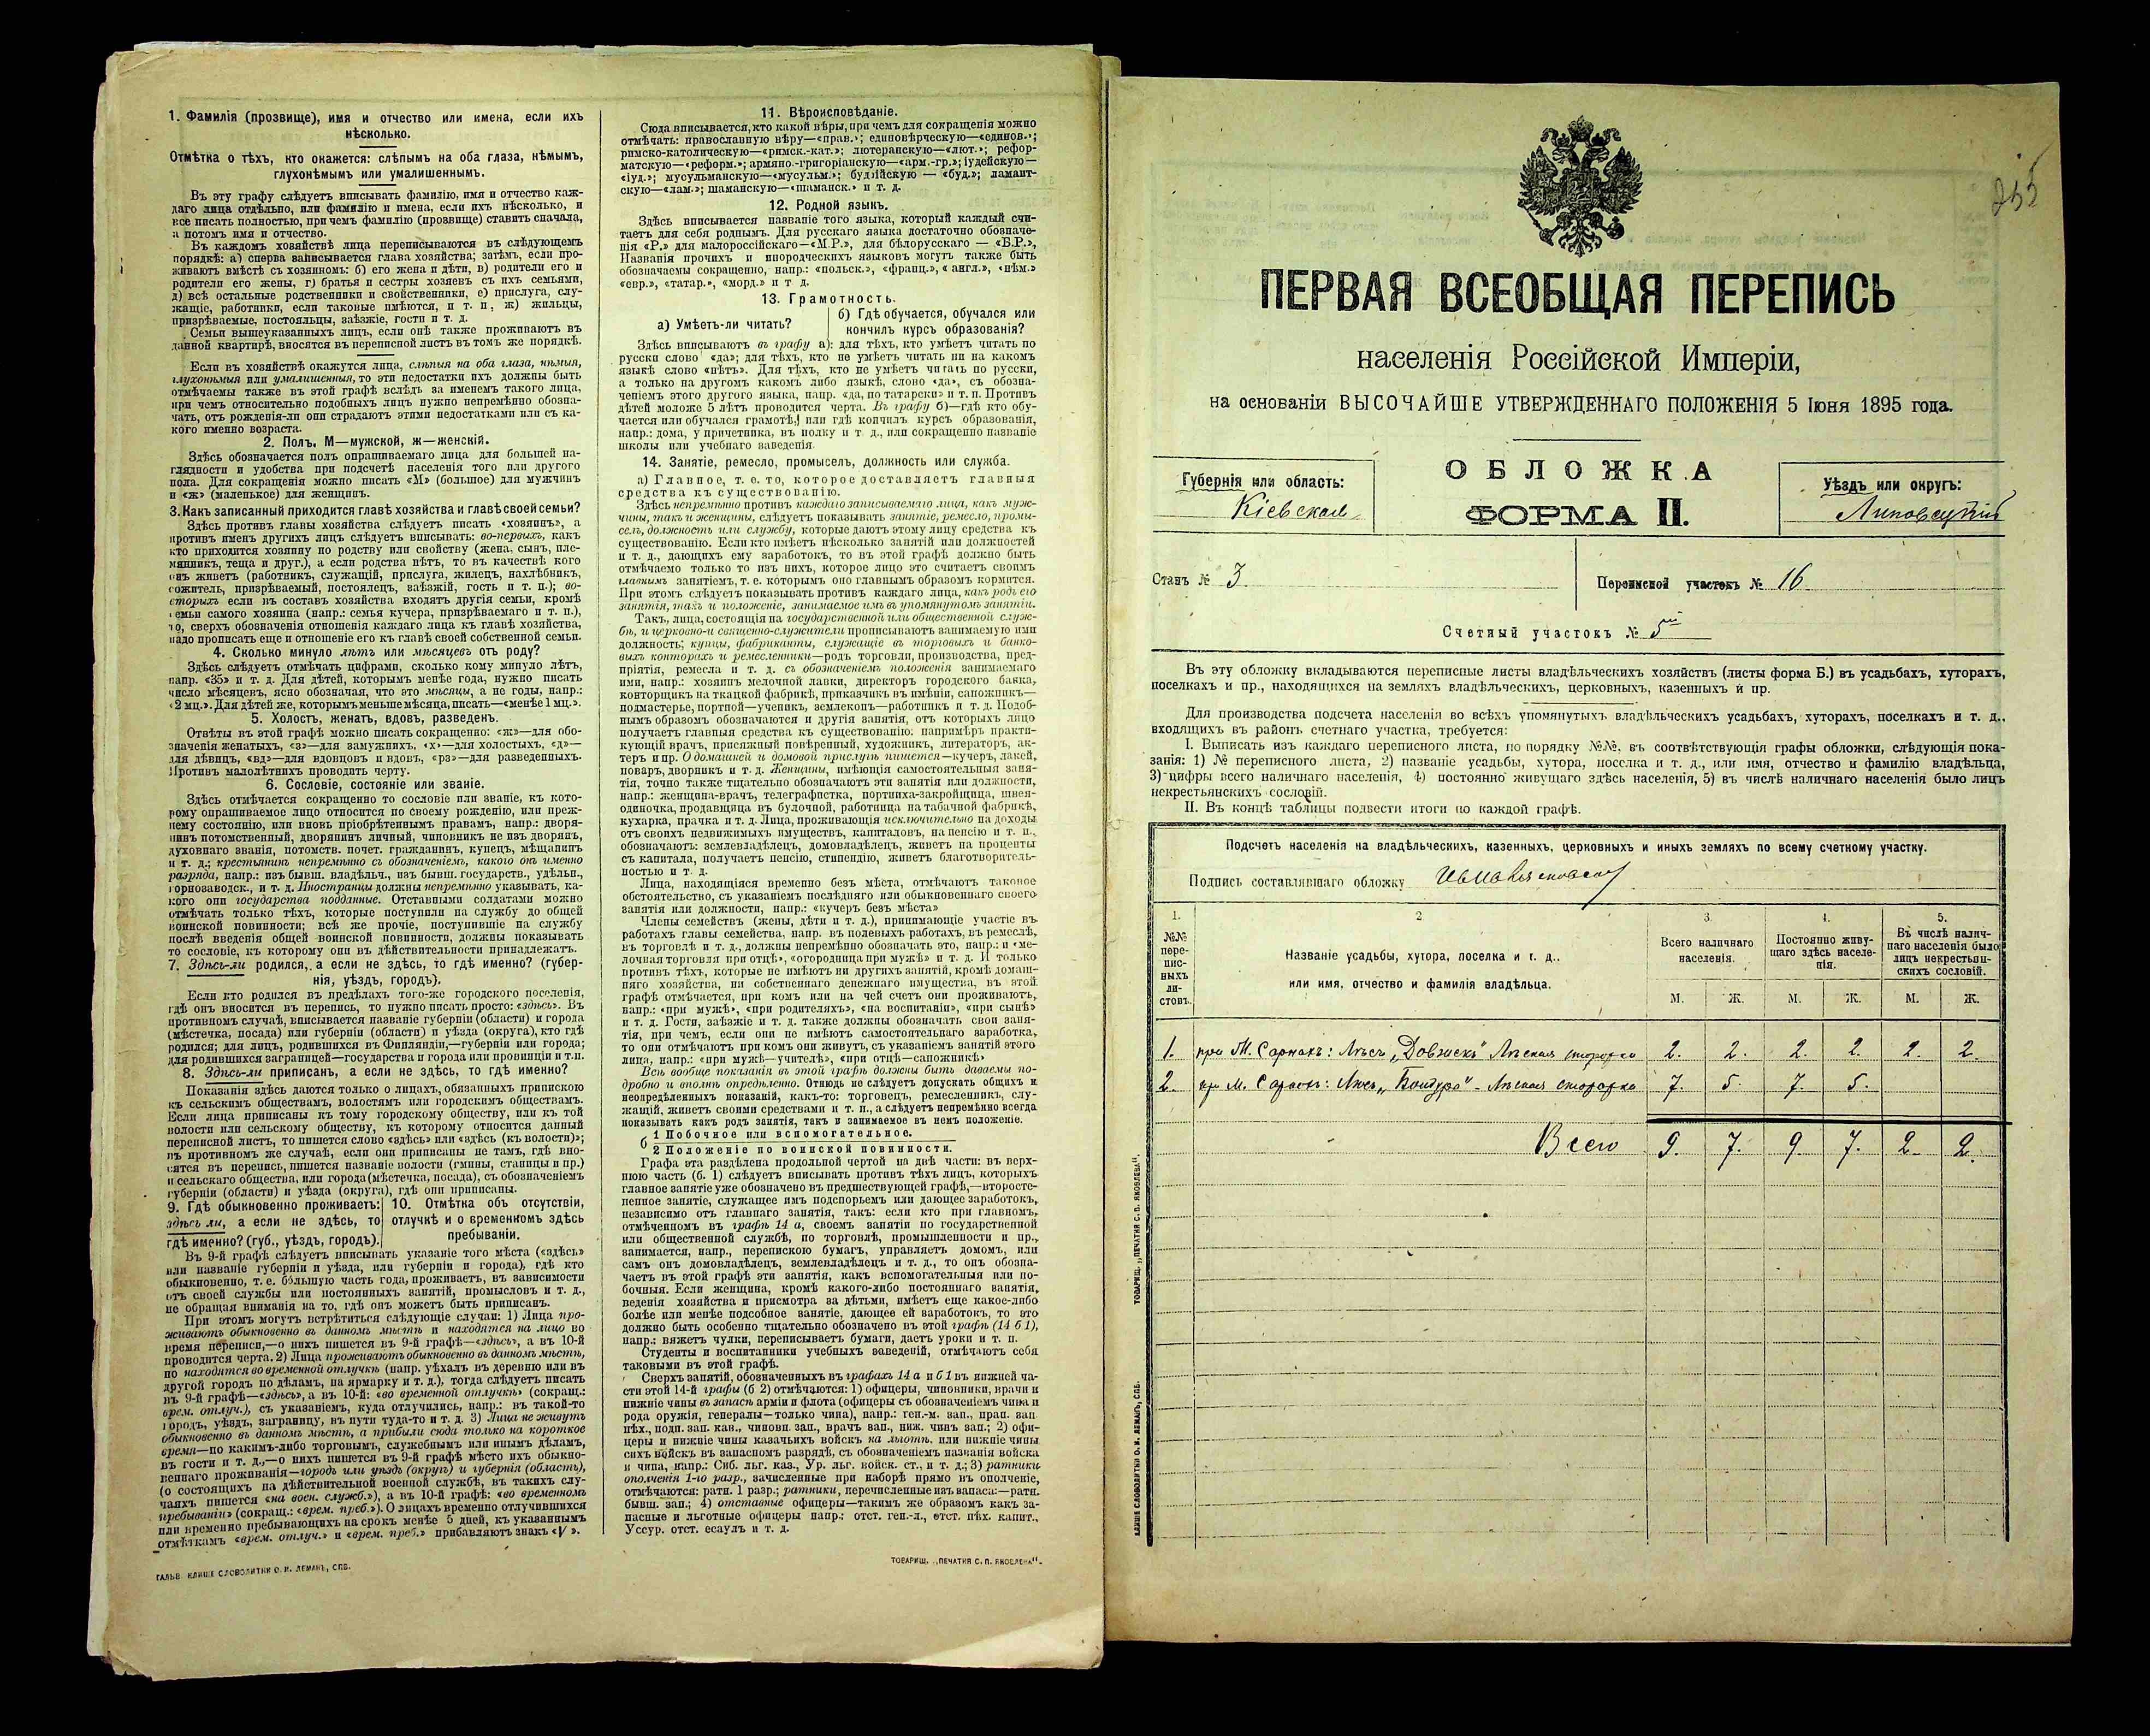 1. Фамилія (прозвище), имя и отчество или имена, если ихъ
нѣсколько.
Отмѣтка о тѣхъ, кто окажется: слѣпымъ на оба глаза, нѣмымъ,
глухонѣмымъ или умалишеннымъ.
Въ эту графу слѣдуетъ вписывать фамилію, имя и отчество каж-
даго лица отдѣльно, или фамилію и имена, если ихъ нѣсколько, и
все писать полностью, при чемъ фамилію (прозвище) ставить сначала,
а потомъ имя и отчество.
Въ каждомъ хозяйствѣ лица переписываются въ слѣдующемъ
порядкѣ: а) сперва записывается глава хозяйства; затѣмъ, если про-
живаютъ вмѣстѣ съ хозяиномъ: б) его жена и дѣти, в) родители его и
родители его жены, г) братья и сестры хозяевъ съ ихъ семьями,
д) всѣ остальные родственники и свойственники, е) прислуга, слу-
жащіе, работники, если таковые имѣются, и т. п, ж) жильцы,
призрѣваемые, постояльцы, заѣзжіе, гости и т. д.
Семьи вышеуказанныхъ лицъ, если онѣ также проживаютъ въ
данной квартирѣ, вносятся въ переписной листъ въ томъ же порядкѣ.
Если въ хозяйствѣ окажутся лица, слѣпыя на оба глаза, нѣмыя,
глухонѣмыя или умалишенныя, то эти недостатки ихъ должны быть
отмѣчаемы также въ этой графѣ вслѣдъ за именемъ такого лица,
при чемъ относительно подобныхъ лицъ нужно непремѣнно обозна-
чать, отъ рожденія-ли они страдаютъ этими недостатками или съ ка-
кого именно возраста.
2. Полъ. М—мужской, ж—женскій.
Здѣсь обозначается полъ опрашиваемаго лица для большей на-
глядности и удобства при подсчетѣ населенія того или другого
пола. Для сокращенія можно писать «М» (большое) для мужчинъ
и «ж» (маленькое) для женщинъ.
3. Какъ записанный приходится главѣ хозяйства и главѣ своей семьи?
Здѣсь противъ главы хозяйства слѣдуетъ писать «хозяинъ», а
противъ именъ другихъ лицъ слѣдуетъ вписывать: во-первыхъ, какъ
кто приходится хозяину по родству или свойству (жена, сынъ, пле-
мянникъ, теща и друг.), а если родства нѣтъ, то въ качествѣ кого
онъ живетъ (работникъ, служащій, прислуга, жилецъ, нахлѣбникъ,
сожитель, призрѣваемый, постоялецъ, заѣзжій, гость и т. п.); во-
вторыхъ если въ составъ хозяйства входятъ другія семьи, кромѣ
семьи самого хозяина (напр.: семья кучера, призрѣваемаго и т. п.),
то, сверхъ обозначенія отношенія каждаго лица къ главѣ хозяйства,
надо прописать еще и отношеніе его къ главѣ своей собственной семьи.
4. Сколько минуло лѣтъ или мѣсяцевъ отъ роду?
Здѣсь слѣдуетъ отмѣчать цифрами, сколько кому минуло лѣтъ,
напр. «35» и т. д. Для дѣтей, которымъ менѣе года, нужно писать
число мѣсяцевъ, ясно обозначая, что это мѣсяцы, а не годы, напр.:
«2 мц.». Для дѣтей же, которымъ меньше мѣсяца, писать—«менѣе 1 мц.».
5. Холостъ, женатъ, вдовъ, разведенъ.
Отвѣты въ этой графѣ можно писать сокращенно: «ж»—для обо-
значенія женатыхъ, «з»—для замужнихъ, «х»—для холостыхъ, «д»—
для дѣвицъ, «вд»—для вдовцовъ и вдовъ, «рз»—для разведенныхъ.
Противъ малолѣтнихъ проводить черту.
6. Сословіе, состояніе или званіе.
Здѣсь отмѣчается сокращенно то сословіе или званіе, къ кото-
рому опрашиваемое лицо относится по своему рожденію, или преж-
нему состоянію, или вновь пріобрѣтеннымъ правамъ, напр.: дворя-
нинъ потомственный, дворянинъ личный, чиновникъ не изъ дворянъ,
духовнаго званія, потомств. почет. гражданинъ, купецъ, мѣщанинъ
и т. д.; крестьянинъ непремѣнно съ обозначеніемъ, какого онъ именно
разряда, напр.: изъ бывш. владѣльч., изъ бывш. государств., удѣльн.,
горнозаводск., и т. д. Иностранцы должны непремѣнно указывать, ка-
кого они государства подданные. Отставными солдатами можно
отмѣчать только тѣхъ, которые поступили на службу до общей
воинской повинности; всѣ же прочіе, поступившіе на службу
послѣ введенія общей воинской повинности, должны показывать
то сословіе, къ которому они въ дѣйствительности принадлежатъ.
7. Здѣсь-ли родился, а если не здѣсь, то гдѣ именно? (губер-
нія, уѣздъ, городъ).
Если кто родился въ предѣлахъ того-же городского поселенія,
гдѣ онъ вносится въ перепись, то нужно писать просто: «здѣсь». Въ
противномъ случаѣ, вписывается названіе губерніи (области) и города
(мѣстечка, посада) или губерніи (области) и уѣзда (округа), кто гдѣ
родился; для лицъ, родившихся въ Финляндіи,—губерніи или города;
для родившихся заграницей—государства и города или провинціи и т.п.
8. Здѣсь-ли приписанъ, а если не здѣсь, то гдѣ именно?
Показанія здѣсь даются только о лицахъ, обязанныхъ припискою
къ сельскимъ обществамъ, волостямъ или городскимъ обществамъ.
Если лица приписаны къ тому городскому обществу, или къ той
волости или сельскому обществу, къ которому относится данный
переписной листъ, то пишется слово «здѣсь» или «здѣсь (къ волости)»;
въ противномъ же случаѣ, если они приписаны не тамъ, гдѣ вно-
сятся въ перепись, пишется названіе волости (гмины, станицы и пр.)
и сельскаго общества, или города (мѣстечка, посада), съ обозначеніемъ
губерніи (области) и уѣзда (округа), гдѣ они приписаны.
9. Гдѣ обыкновенно проживаетъ:
здѣсь ли, а если не здѣсь, то
гдѣ именно? (губ., уѣздъ, городъ).
10. Отмѣтка объ отсутствіи,
отлучкѣ и о временномъ здѣсь
пребываніи.
Въ 9-й графѣ слѣдуетъ вписывать указаніе того мѣста («здѣсь»
или названіе губерніи и уѣзда, или губерніи и города), гдѣ кто
обыкновенно, т. е. бо́льшую часть года, проживаетъ, въ зависимости
отъ своей службы или постоянныхъ занятій, промысловъ и т. д.,
не обращая вниманія на то, гдѣ онъ можетъ быть приписанъ.
При этомъ могутъ встрѣтиться слѣдующіе случаи: 1) Лица про-
живаютъ обыкновенно въ данномъ мѣстѣ и находятся на лицо во
время переписи,—о нихъ пишется въ 9-й графѣ—«здѣсь», а въ 10-й
проводится черта. 2) Лица проживаютъ обыкновенно въ данномъ мѣстѣ,
но находятся во временной отлучкѣ (напр. уѣхалъ въ деревню или въ
другой городъ по дѣламъ, на ярмарку и т. д.), тогда слѣдуетъ писать
въ 9-й графѣ—«здѣсь», а въ 10-й: «во временной отлучкѣ» (сокращ.:
врем. отлуч.), съ указаніемъ, куда отлучились, напр.: въ такой-то
городъ, уѣздъ, заграницу, въ пути туда-то и т. д. 3) Лица не живутъ
обыкновенно въ данномъ мѣстѣ, а прибыли сюда только на короткое
время—по какимъ-либо торговымъ, служебнымъ или инымъ дѣламъ,
въ гости и т. д.,—о нихъ пишется въ 9-й графѣ мѣсто ихъ обыкно-
веннаго проживанія—городъ или уѣздъ (округъ) и губернія (область),
(о состоящихъ на дѣйствительной военной службѣ, въ такихъ слу-
чаяхъ пишется «на воен. служб.»), а въ 10-й графѣ: «во временномъ
пребываніи» (сокращ.: «врем. преб.»). О лицахъ временно отлучившихся
или временно пребывающихъ на срокъ менѣе 5 дней, къ указаннымъ
отмѣткамъ «врем. отлуч.» и «врем. преб.» прибавляютъ знакъ «V».
ГАЛЬВ. КЛИШЕ СЛОВОЛИТНИ О. И. ЛЕМАНЪ, СПБ.
11. Вѣроисповѣданіе.
Сюда вписывается, кто какой вѣры, при чемъ для сокращенія можно
отмѣчать: православную вѣру—«прав.»; единовѣрческую—«единов.»;
римско-католическую—«римск.-кат.»; лютеранскую—«лют.»; рефор-
матскую—«реформ.»; армяно.-григоріанскую—«арм.-гр.»; іудейскую—
«іуд.»; мусульманскую—«мусульм.»; буддійскую — «буд.»; ламаит-
скую—«лам.»; шаманскую—«шаманск.» и т. д.
12. Родной языкъ.
Здѣсь вписывается названіе того языка, который каждый счи-
таетъ для себя роднымъ. Для русскаго языка достаточно обозначе-
нія «Р.» для малороссійскаго—«М.Р.», для бѣлорусскаго — «Б.Р.»,
Названія прочихъ и инородческихъ языковъ могутъ также быть
обозначаемы сокращенно, напр.: «польск.», «франц.», « англ.», «нѣм.»
«евр.», «татар.», «морд.» и т д.
13. Грамотность.
а) Умѣетъ-ли читать?
б) Гдѣ обучается, обучался или
кончилъ курсъ образованія?
Здѣсь вписываютъ въ графу а): для тѣхъ, кто умѣетъ читать по
русски слово «да»; для тѣхъ, кто не умѣетъ читать ни на какомъ
языкѣ слово «нѣтъ». Для тѣхъ, кто не умѣетъ читать по русски,
а только на другомъ какомъ либо языкѣ, слово «да», съ обозна-
ченіемъ этого другого языка, напр. «да, по татарски» и т. п. Противъ
дѣтей моложе 5 лѣтъ проводится черта. Въ графу б)—гдѣ кто обу-
чается или обучался грамотѣ, или гдѣ кончилъ курсъ образованія,
напр.: дома, у причетника, въ полку и т д., или сокращенно названіе
школы или учебнаго заведенія.
14. Занятіе, ремесло, промыселъ, должность или служба.
а) Главное, т. е. то, которое доставляетъ главныя
средства къ существованію.
Здѣсь непремѣнно противъ каждаго записываемаго лица, какъ муж-
чины, такъ и женщины, слѣдуетъ показывать занятіе, ремесло, промы-
селъ, должность или службу, которые даютъ этому лицу средства къ
существованію. Если кто имѣетъ нѣсколько занятій или должностей
и т. д., дающихъ ему заработокъ, то въ этой графѣ должно быть
отмѣчаемо только то изъ нихъ, которое лицо это считаетъ своимъ
главнымъ занятіемъ, т. е. которымъ оно главнымъ образомъ кормится.
При этомъ слѣдуетъ показывать противъ каждаго лица, какъ родъ его
занятія, такъ и положеніе, занимаемое имъ въ упомянутомъ занятіи.
Такъ, лица, состоящія на государственной или общественной служ-
бѣ, и церковно-и священно-служители прописываютъ занимаемую ими
должность; купцы, фабриканты, служащіе въ торговыхъ и банко-
выхъ конторахъ и ремесленники—родъ торговли, производства, пред-
пріятія, ремесла и т. д. съ обозначеніемъ положенія занимаемаго
ими, напр.: хозяинъ мелочной лавки, директоръ городского банка,
конторщикъ на ткацкой фабрикѣ, приказчикъ въ имѣніи, сапожникъ—
подмастерье, портной—ученикъ, землекопъ—работникъ и т. д. Подоб-
нымъ образомъ обозначаются и другія занятія, отъ которыхъ лицо
получаетъ главныя средства къ существованію: напримѣръ практи-
кующій врачъ, присяжный повѣренный, художникъ, литераторъ, ак-
теръ и пр. О домашней и домовой прислугѣ пишется—кучеръ, лакей,
поваръ, дворникъ и т. д. Женщины, имѣющія самостоятельныя заня-
тія, точно также тщательно обозначаютъ эти занятія или должности,
напр.: женщина-врачъ, телеграфистка, портниха-закройщица, швея-
одиночка, продавщица въ булочной, работница на табачной фабрикѣ,
кухарка, прачка и т. д. Лица, проживающія исключительно на доходы
отъ своихъ недвижимыхъ имуществъ, капиталовъ, на пенсію и т. п.,
обозначаютъ: землевладѣлецъ, домовладѣлецъ, живетъ на проценты
съ капитала, получаетъ пенсію, стипендію, живетъ благотворитель-
ностью и т д.
Лица, находящіяся временно безъ мѣста, отмѣчаютъ таковое
обстоятельство, съ указаніемъ послѣдняго или обыкновеннаго своего
занятія или должности, напр.: «кучеръ безъ мѣста»
Члены семействъ (жены, дѣти и т. д.), принимающіе участіе въ
работахъ главы семейства, напр. въ полевыхъ работахъ, въ ремеслѣ,
въ торговлѣ и т. д., должны непремѣнно обозначать это, напр.: и «ме-
лочная торговля при отцѣ», «огородница при мужѣ» и т. д. И только
противъ тѣхъ, которые не имѣютъ ни другихъ занятій, кромѣ домаш-
няго хозяйства, ни собственнаго денежнаго имущества, въ этой
графѣ отмѣчается, при комъ или на чей счетъ они проживаютъ,
напр.: «при мужѣ», «при родителяхъ», «на воспитаніи», «при сынѣ»
и т. д. Гости, заѣзжіе и т. д. также должны обозначать свои заня-
тія, при чемъ, если они не имѣютъ самостоятельнаго заработка,
то они отмѣчаютъ при комъ они живутъ, съ указаніемъ занятій этого
лица, напр.: «при мужѣ—учителѣ», «при отцѣ—сапожникѣ»
Всѣ вообще показанія въ этой графѣ должны быть даваемы по-
дробно и вполнѣ опредѣленно. Отнюдь не слѣдуетъ допускать общихъ и
неопредѣленныхъ показаній, какъ-то: торговецъ, ремесленникъ, слу-
жащій, живетъ своими средствами и т. п., а слѣдуетъ непремѣнно всегда
показывать какъ родъ занятія, такъ и занимаемое въ немъ положеніе.
б 1 Побочное или вспомогательное.
2 Положеніе по воинской повинности.
Графа эта раздѣлена продольной чертой на двѣ части: въ верх-
нюю часть (б. 1) слѣдуетъ вписывать противъ тѣхъ лицъ, которыхъ
главное занятіе уже обозначено въ предшествующей графѣ,—второсте-
пенное занятіе, служащее имъ подспорьемъ или дающее заработокъ,
независимо отъ главнаго занятія, такъ: если кто при главномъ,
отмѣченномъ въ графѣ 14 а, своемъ занятіи по государственной
или общественной службѣ, по торговлѣ, промышленности и пр.,
занимается, напр., перепискою бумагъ, управляетъ домомъ, или
самъ онъ домовладѣлецъ, землевладѣлецъ и т. д., то онъ обозна-
чаетъ въ этой графѣ эти занятія, какъ вспомогательныя или по-
бочныя. Если женщина, кромѣ какого-либо постояннаго занятія,
веденія хозяйства и присмотра за дѣтьми, имѣетъ еще какое-либо
болѣе или менѣе подсобное занятіе, дающее ей заработокъ, то это
должно быть особенно тщательно обозначено въ этой графѣ (14 б 1),
напр.: вяжетъ чулки, переписываетъ бумаги, даетъ уроки и т. п.
Студенты и воспитанники учебныхъ заведеній, отмѣчаютъ себя
таковыми въ этой графѣ.
Сверхъ занятій, обозначенныхъ въ графахъ 14 а и б 1 въ нижней ча-
сти этой 14-й графы (б 2) отмѣчаются: 1) офицеры, чиновники, врачи и
нижніе чины въ запасѣ арміи и флота (офицеры съ обозначеніемъ чина и
рода оружія, генералы—только чина), напр.: ген.-м. зап., прап. зап
пѣх., подп. зап. кав., чиновн. зап., врачъ зап., ниж. чинъ зап.; 2) офи-
церы и нижніе чины казачьихъ войскъ на льготѣ, или нижніе чины
сихъ войскъ въ запасномъ разрядѣ, съ обозначеніемъ названія войска
и чина, напр.: Сиб. льг. каз., Ур. льг. войск. ст., и т. д.; 3) ратники
ополченія 1-го разр., зачисленные при наборѣ прямо въ ополченіе,
отмѣчаются: ратн. 1 разр.; ратники, перечисленные изъ запаса:—ратн.
бывш. зап.; 4) отставные офицеры—такимъ же образомъ какъ за-
пасные и льготные офицеры напр.: отст. ген.-л., отст. пѣх. капит.,
Уссур. отст. есаулъ и т. д.
ТОВАРИЩ. „ПЕЧАТНЯ С. П. ЯКОВЛЕВА".
255
ПЕРВАЯ ВСЕОБЩАЯ ПЕРЕПИСЬ
населенія Россійской Имперіи,
на основаніи ВЫСОЧАЙШЕ УТВЕРЖДЕННАГО ПОЛОЖЕНІЯ 5 Іюня 1895 года.
ОБЛОЖКА
ФОРМА II.
Губернія или область:
Кіевская
Уѣздъ или округъ:
Липовецкій
Станъ № 3
Переписной участокъ № 16
Счетный участокъ № 5й
Въ эту обложку вкладываются переписные листы владѣльческихъ хозяйствъ (листы форма Б.) въ усадьбахъ, хуторахъ,
поселкахъ и пр., находящихся на земляхъ владѣльческихъ, церковныхъ, казенныхъ и пр.
Для производства подсчета населенія во всѣхъ упомянутыхъ владѣльческихъ усадьбахъ, хуторахъ, поселкахъ и т. д.,
входящихъ въ районъ счетнаго участка, требуется:
I. Выписать изъ каждаго переписного листа, по порядку №№, въ соотвѣтствующія графы обложки, слѣдующія пока-
занія: 1) № переписного листа, 2) названіе усадьбы, хутора, поселка и т. д., или имя, отчество и фамилію владѣльца,
3) цифры всего наличнаго населенія, 4) постоянно живущаго здѣсь населенія, 5) въ числѣ наличнаго населенія было лицъ
некрестьянскихъ сословій.
II. Въ концѣ таблицы подвести итоги по каждой графѣ.
Подсчетъ населенія на владѣльческихъ, казенныхъ, церковныхъ и иныхъ земляхъ по всему счетному участку.
Подпись составлявшаго обложку
1. 2 3. 4. 5.
№№ пере-пис-ныхъ ли-стовъ.
Названіе усадьбы, хутора, поселка и т. д.,
или имя, отчество и фамилія владѣльца.
Всего наличнаго населенія.
Постоянно живу-щаго здѣсь населе-нія.
Въ числѣ налич-наго населенія было лицъ некрестьян-скихъ сословій.
М. Ж. М. Ж. М. Ж.
1. при М. Сарнахъ: Лѣсъ „Довжекъ" Лѣсная сторожка 2. 2. 2. 2. 2. 2.
2. пр М. Сарнахъ: Лѣсъ „Бондура" - Лѣсная сторожка 7. 5. 7. 5.
Всего 9. 7. 9. 7. 2 2.
ТОВАРИЩ. „ПЕЧАТНЯ С. П. ЯКОВЛЕВА".
КЛИШЕ СЛОВОЛИТНИ О. И. ЛЕМАНЪ, СПБ.